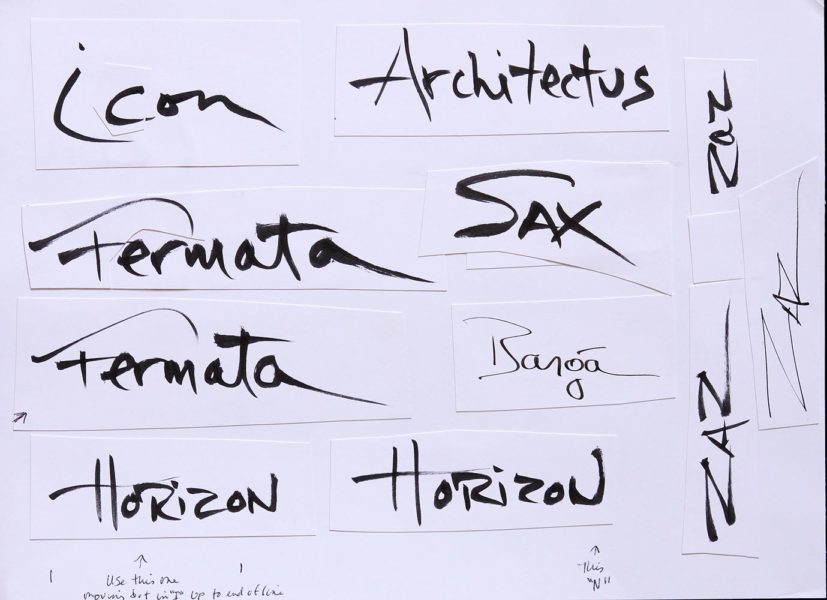 icon
Architectus
zaz
Fermata
SAX
ZAZ
Fermata
Banga
ZAZ
HORIZON
HORIZON
Use this one
moving dot in "I" up to end of line
This
"N"